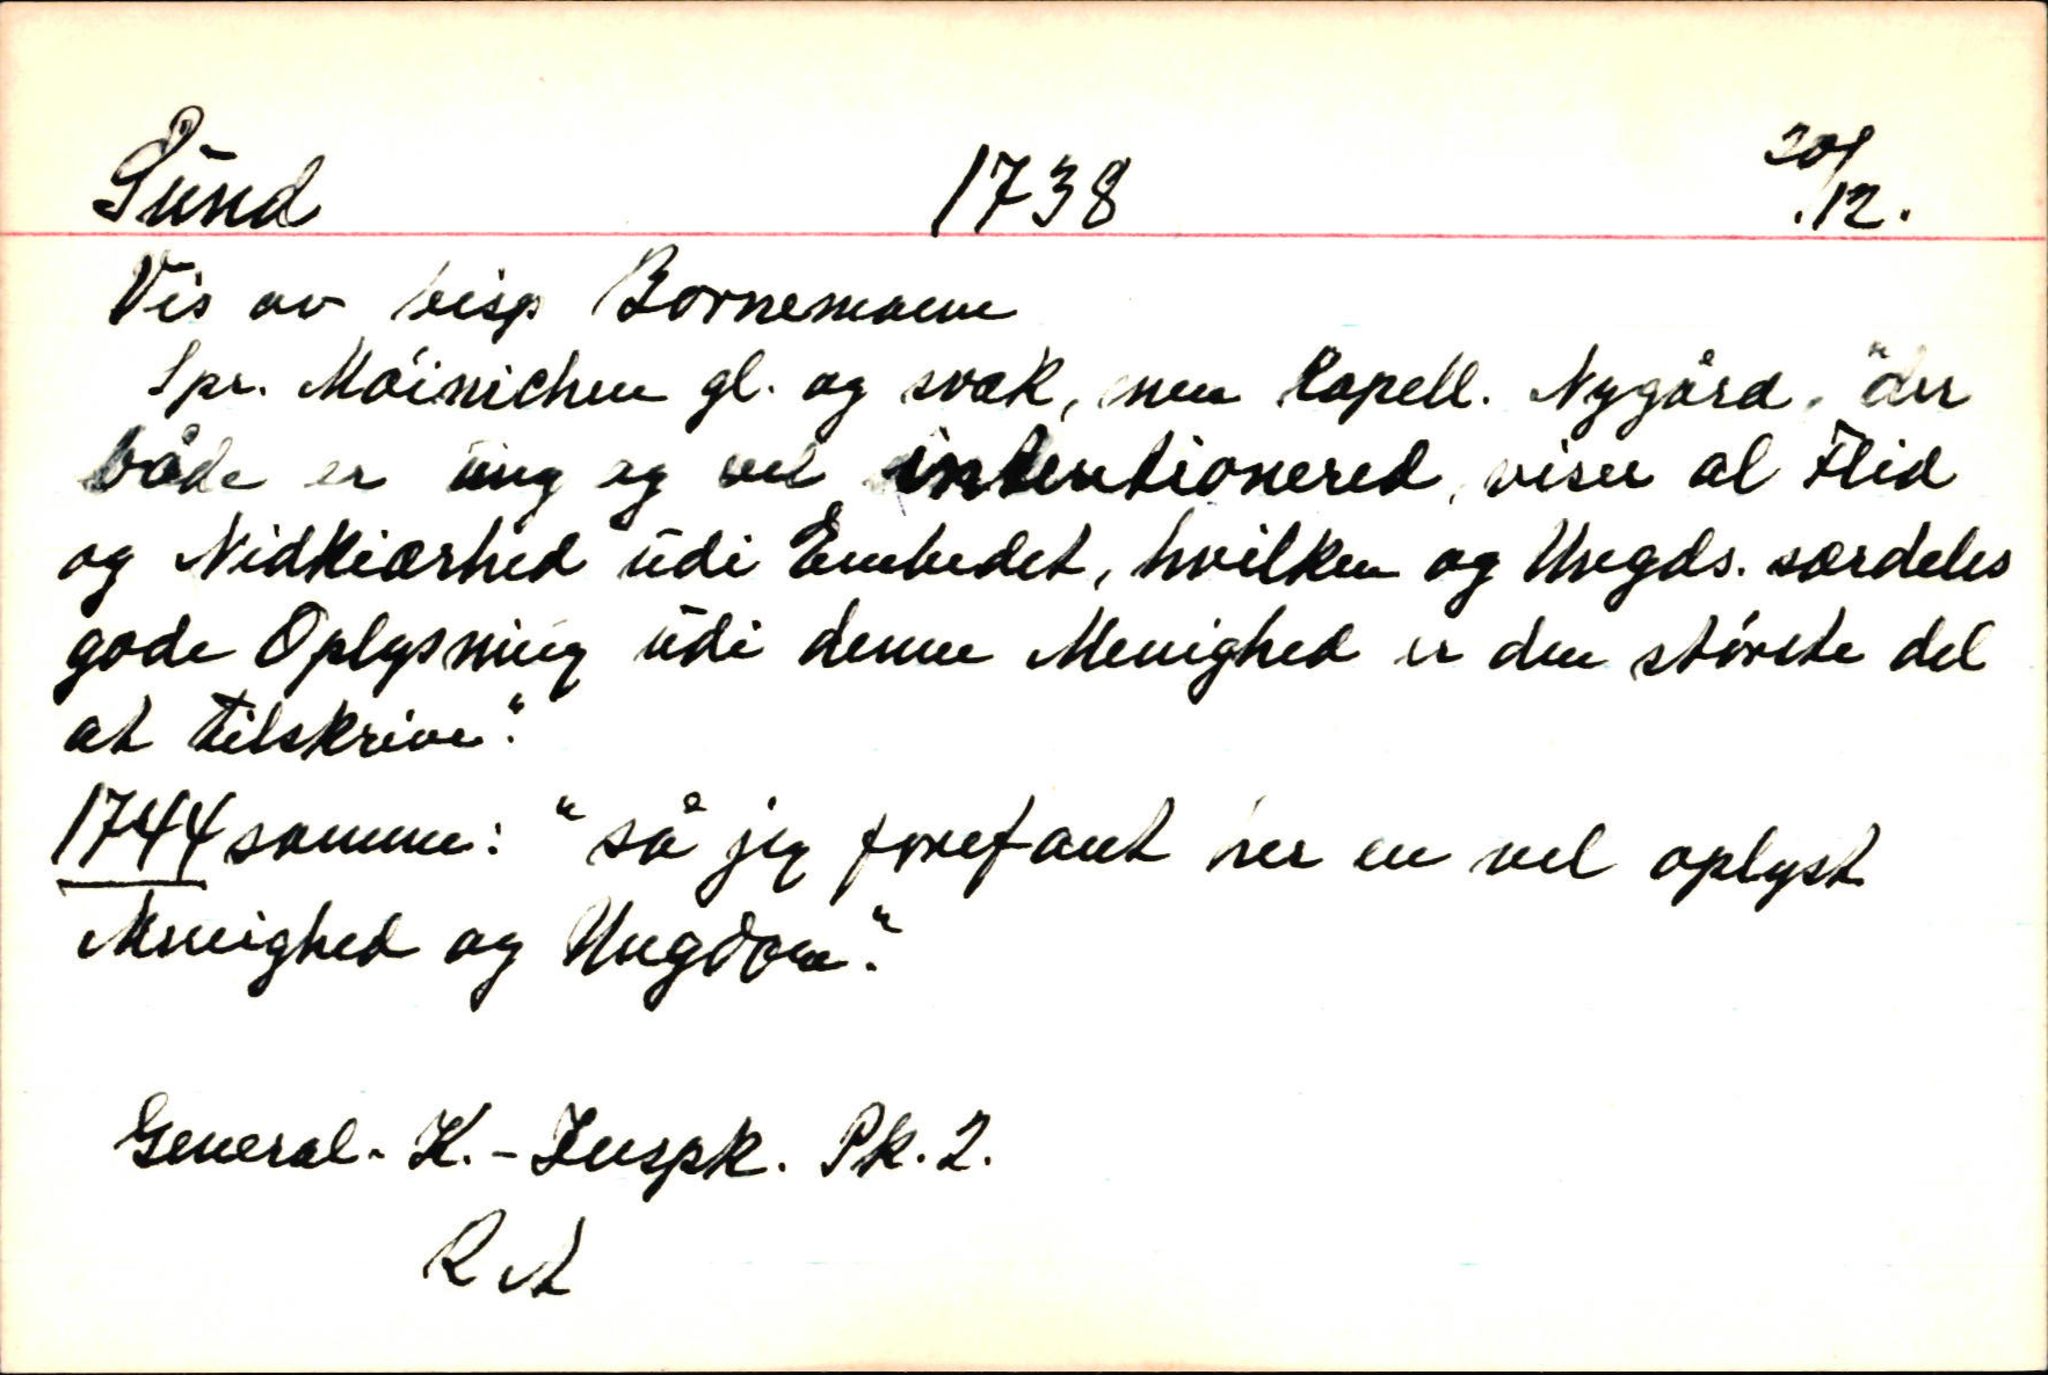 Sund 1738 20/12.
Vis av bisp Bornemann
Spr. Möinichen gl. og svak, men Capell. Nygård, "der
både er ung og vel intentionered, viser al Flid
og Nidkiærhed udi Embedet, hvilken og Ungds. særdeles
gode Oplysning udi denne Menighed er den störste del
at tilskrive."
1744 samme: "så jeg forefant her en vel oplyst
Menighed og Ungdom."
General- K.-Inspk. Pk. 2.
RA